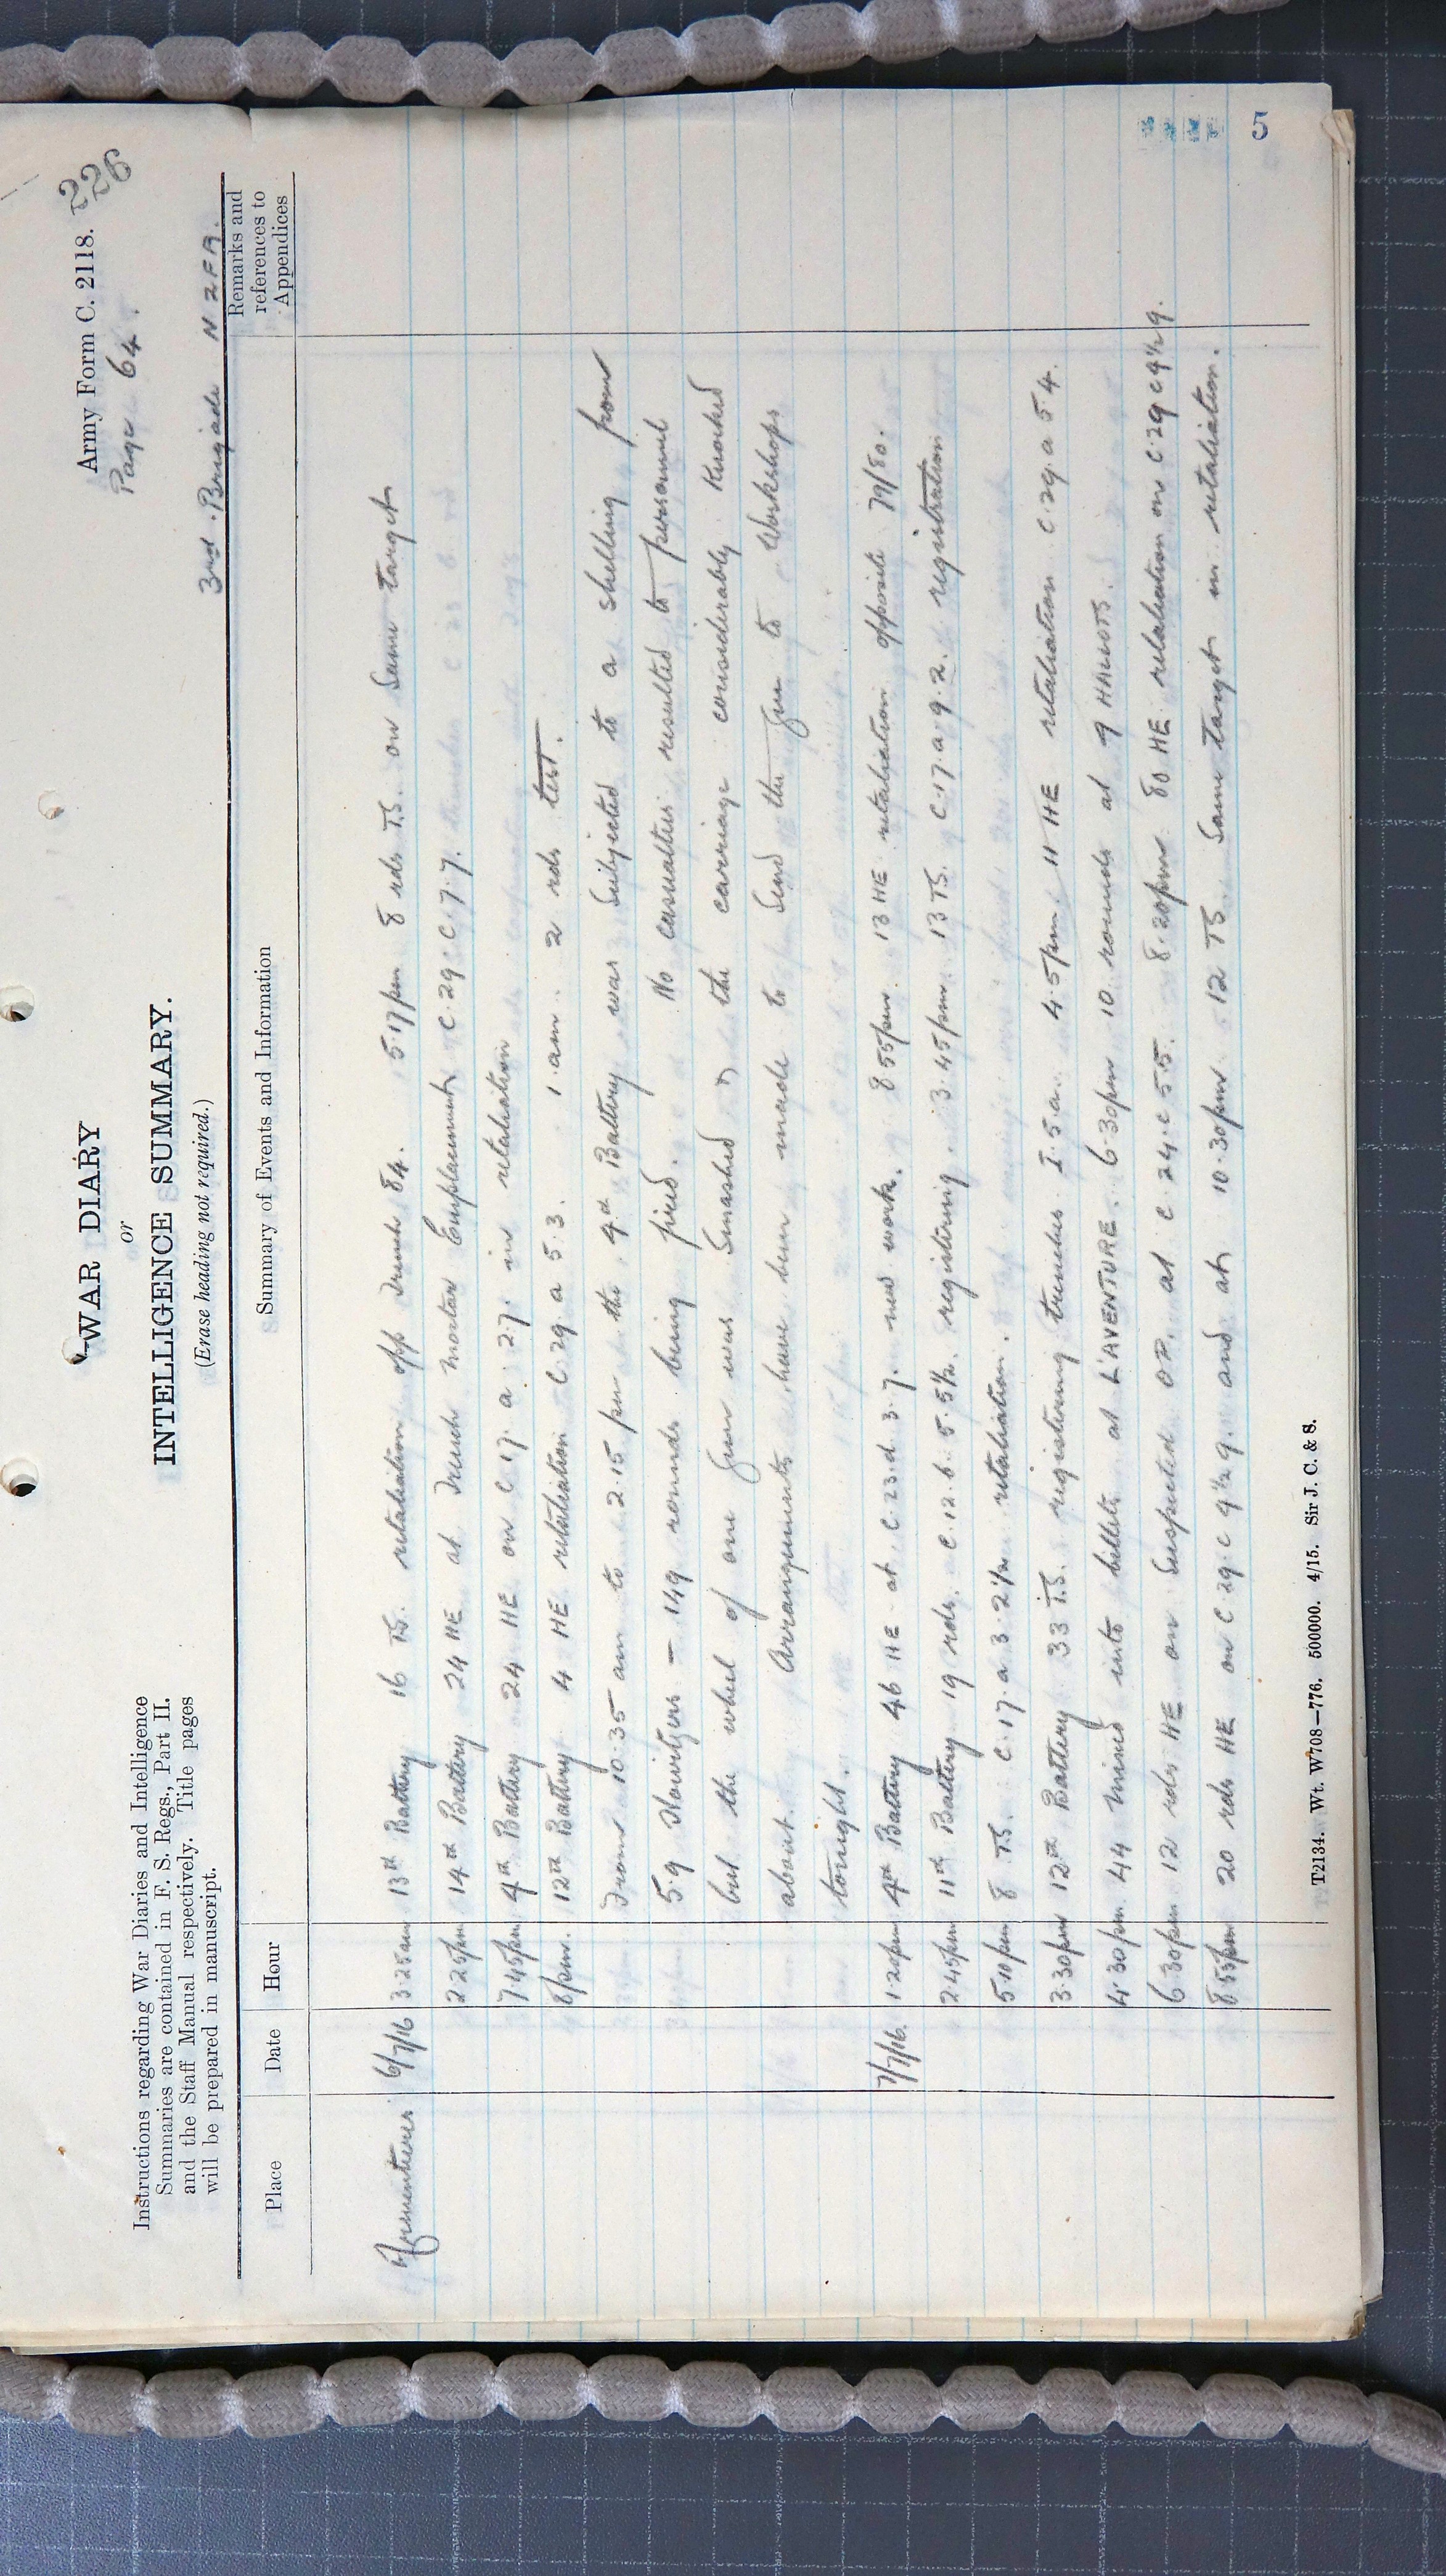 Army Form C. 2118.
226
Page 64.
WAR DIARY
or
INTELLIGENCE SUMMARY.
(Erase heading not required.)
3rd Brigade N Z F A.
Instructions regarding War Diaries and Intelligence
Summaries are contained in F. S. Regs., Part II.
and the Staff Manual respectively. Title pages
will be prepared in manuscript.
Place Date Hour Summary of Events and Information Remarks and references to Appendices
Armentieres 6/7/16 3.25am 13th Battery 16 TS. retaliation opp Trench 84. 5.17pm 8 rds T.S. on Same target
2.25pm 14th Battery 24 HE at Trench Mortar Emplacement C.29 C.7.7.
7.45pm 4th Battery 24 HE on C 17. a. 2.7. in retaliation
8pm. 12th Battery 4 HE retaliation C 29. a 5.3. 1.am. 2 rds test.
From 10.35 am to 2.15 pm the 4th Battery was Subjected to a shelling from
5.9 Howitzers - 149 rounds being fired. No casualties resulted to personnel
but the wheel of one gun was Smashed & the carriage considerably Knocked
about. Arrangements have been made to Send the gun to Workshops
tonight.
7/7/16. 1.20pm 4th Battery 46 HE at C.23.d.3.7. new work. 8 55pm 13 HE retaliation opposite 79/80.
2.45pm 11th Battery 19 rds. C.12.b.5.5½. registering. 3.45pm. 13 TS. C.17.a.9.2. registration
5.10pm 8 TS. C.17.a 3.2½. retaliation.
3.30pm 12th Battery 33 T.S. registering trenches I.5.a. 4.5pm. 11 HE retaliation C.29.a 5.4.
4.30pm. 44 mixed into billets at L'AVENTURE. 6.30pm 10 rounds at 9 HALLOTS.
6.30pm 12 rds HE on Suspected OP. at C.24.c 5.5. 8.20pm 80 HE retaliation on C.29 c 9½ 9.
8.55pm 20 rds HE on C.29.c 9½ 9. and at 10.30pm 12 TS Same target in retaliation.
T2134. Wt. W708—776. 500000. 4/15. Sir J. C. & S.
5